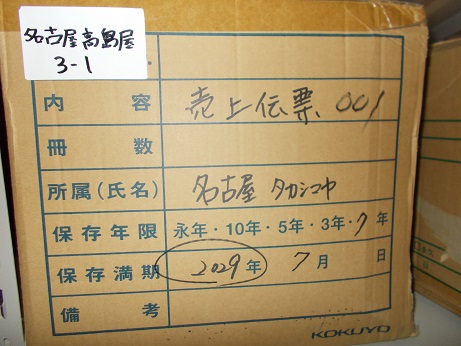 名古屋高島屋
3-1
内容 売上伝票 001
冊数
所属(氏名) 名古屋 タカシマヤ
保存年限 永年・10年・5年・3年・7年
保存満期 2029年 7月 日
備考
KOKUYO